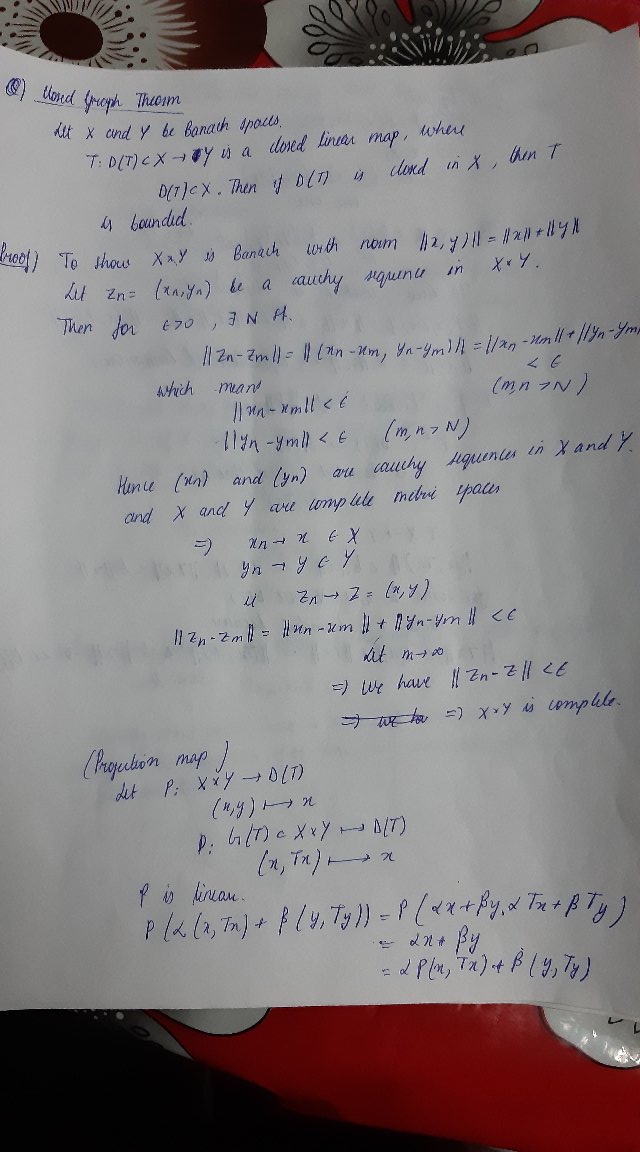 Q) Closed Graph Theorem
Let X and Y be Banach spaces.
T: D(T) ⊂ X → Y is a closed linear map, where
D(T) ⊂ X. Then if D(T) is closed in X, then T
is bounded.
Proof) To show X×Y is Banach with norm ||x, y)|| = ||x|| + ||y||
Let zn = (xn, yn) be a cauchy sequence in X×Y.
Then for ε>0, ∃ N st.
||zn-zm|| = ||(xn-xm, yn-ym)|| = ||xn-xm|| + ||yn-ym
< ε
which means (m,n > N)
||xn-xm|| < ε
||yn-ym|| < ε (m,n > N)
Hence (xn) and (yn) are cauchy sequences in X and Y.
and X and Y are complete metric spaces
=> xn → x ∈ X
yn → y ∈ Y
zn → z = (x,y)
||zn-zm|| = ||xn-xm|| + ||yn-ym|| < ε
Let m→∞
=> We have ||zn-z|| < ε
=> X×Y is complete.
(Projection map)
Let P: X×Y → D(T)
(x,y) ↦ x
P: G(T) ⊂ X×Y ↦ D(T)
(x, Tx) ↦ x
P is linear.
P(α(x,Tx) + β(y,Ty)) = P(αx+βy, αTx+βTy)
= αx + βy
= αP(x, Tx) + β(y, Ty)